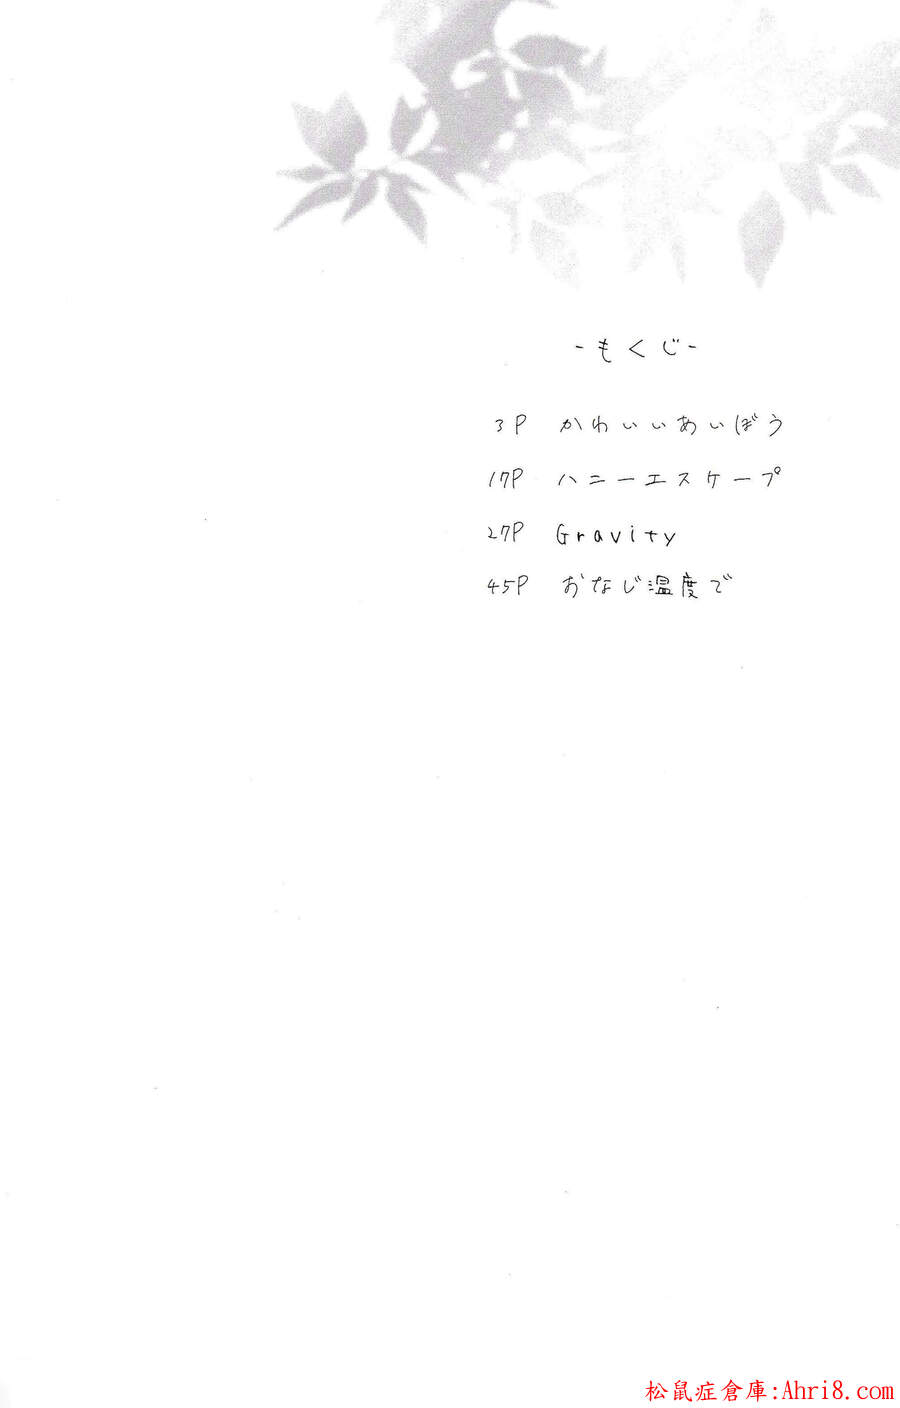 -もくじ-
3P かわいいあいぼう
17P ハニーエスケープ
27P Gravity
45P おなじ温度で
松鼠症倉庫:Ahri8.com